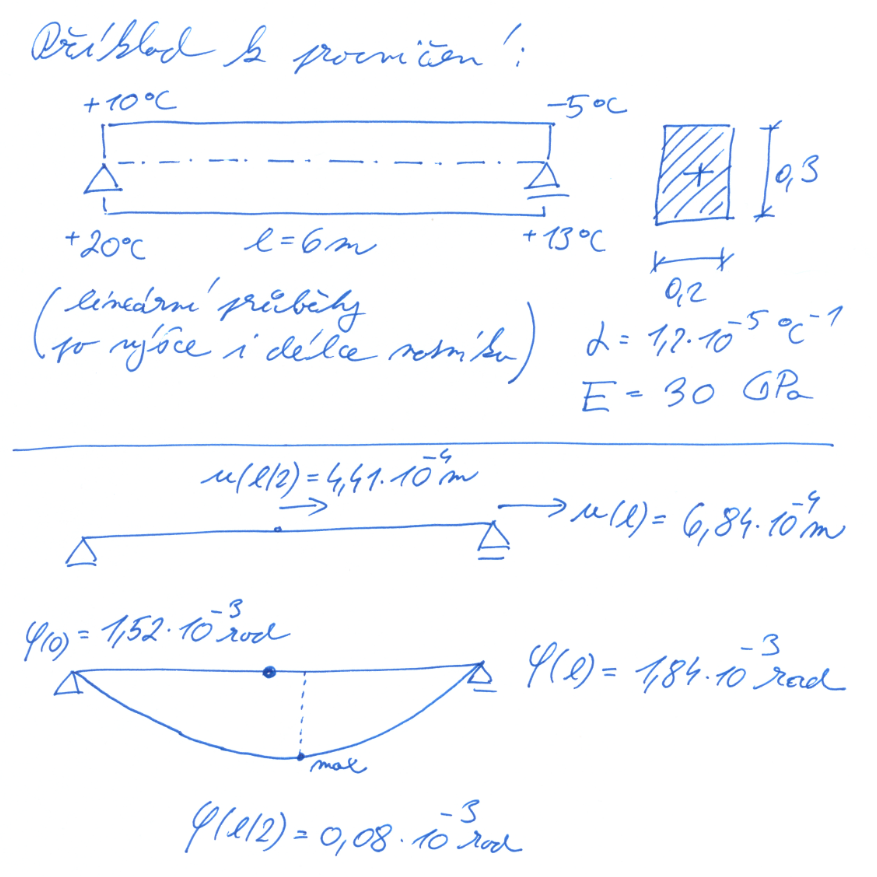 Příklad k procvičení:
+10°C
-5°C
+20°C
l = 6 m
+13°C
0,3
0,2
(lineární průběhy
po výšce i délce nosníku)
α = 1,2·10⁻⁵ °C⁻¹
E = 30 GPa
u(l/2) = 4,41·10⁻⁴ m
u(l) = 6,84·10⁻⁴ m
φ(0) = 1,52·10⁻³ rad
φ(l) = 1,84·10⁻³ rad
max
φ(l/2) = 0,08·10⁻³ rad